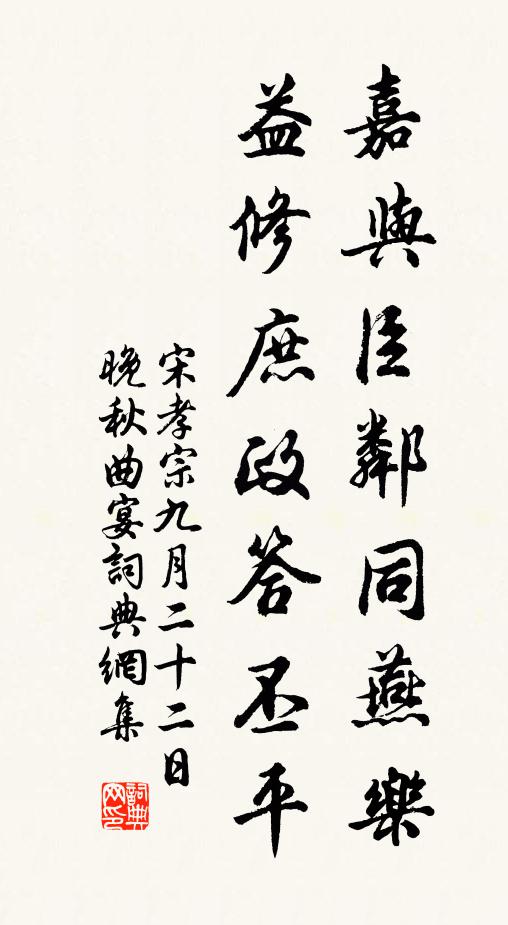 嘉與臣鄰同燕樂
益修庶政答丕平
宋孝宗九月二十二日
晚秋曲宴詞典網集
詞典
网印